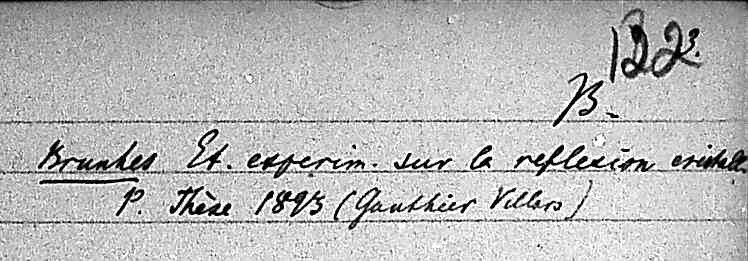 1223.
B.
Brunhes Et. experim. sur la reflexion cristall.
P. Thèse 1893 (Gauthier Villars)